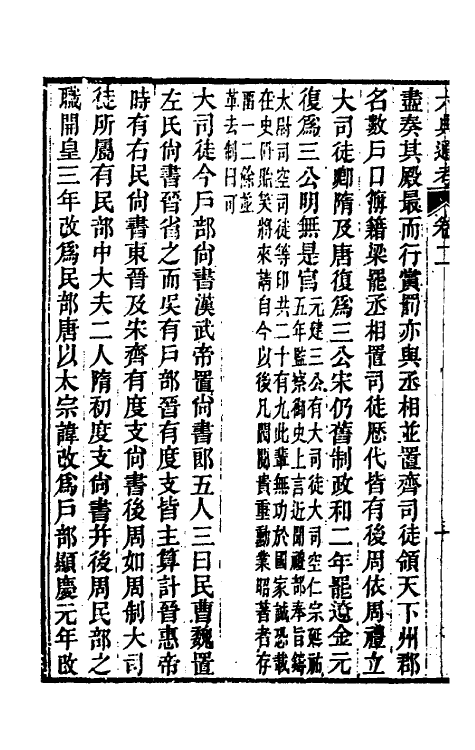 六典通考 卷二
盡奏其殿最而行賞罰亦與丞相並置齊司徒領天下州郡
名數戶口簿籍梁罷丞相置司徒歷代皆有後周依周禮立
大司徒卿隋及唐復爲三公宋仍舊制政和二年罷遼金元
復爲三公明無是官元建三公有大司徒大司空仁宗延祐
五年監察御史上言近聞禮部奉旨鑄
太尉司空司徒等印共二十有九此輩無功於國家誠恐載
在史册貽笑將來請自今以後凡閥閱貴重勳業昭著者存
留一二餘並
革去制曰可
大司徒今戶部尙書漢武帝置尙書郎五人三曰民曹魏置
左氏尙書晉省之而吳有戶部晉有度支皆主算計晉惠帝
時有右民尙書東晉及宋齊有度支尙書後周如周制大司
徒所屬有民部中大夫二人隋初度支尙書并後周民部之
職開皇三年改爲民部唐以太宗諱改爲戶部顯慶元年改